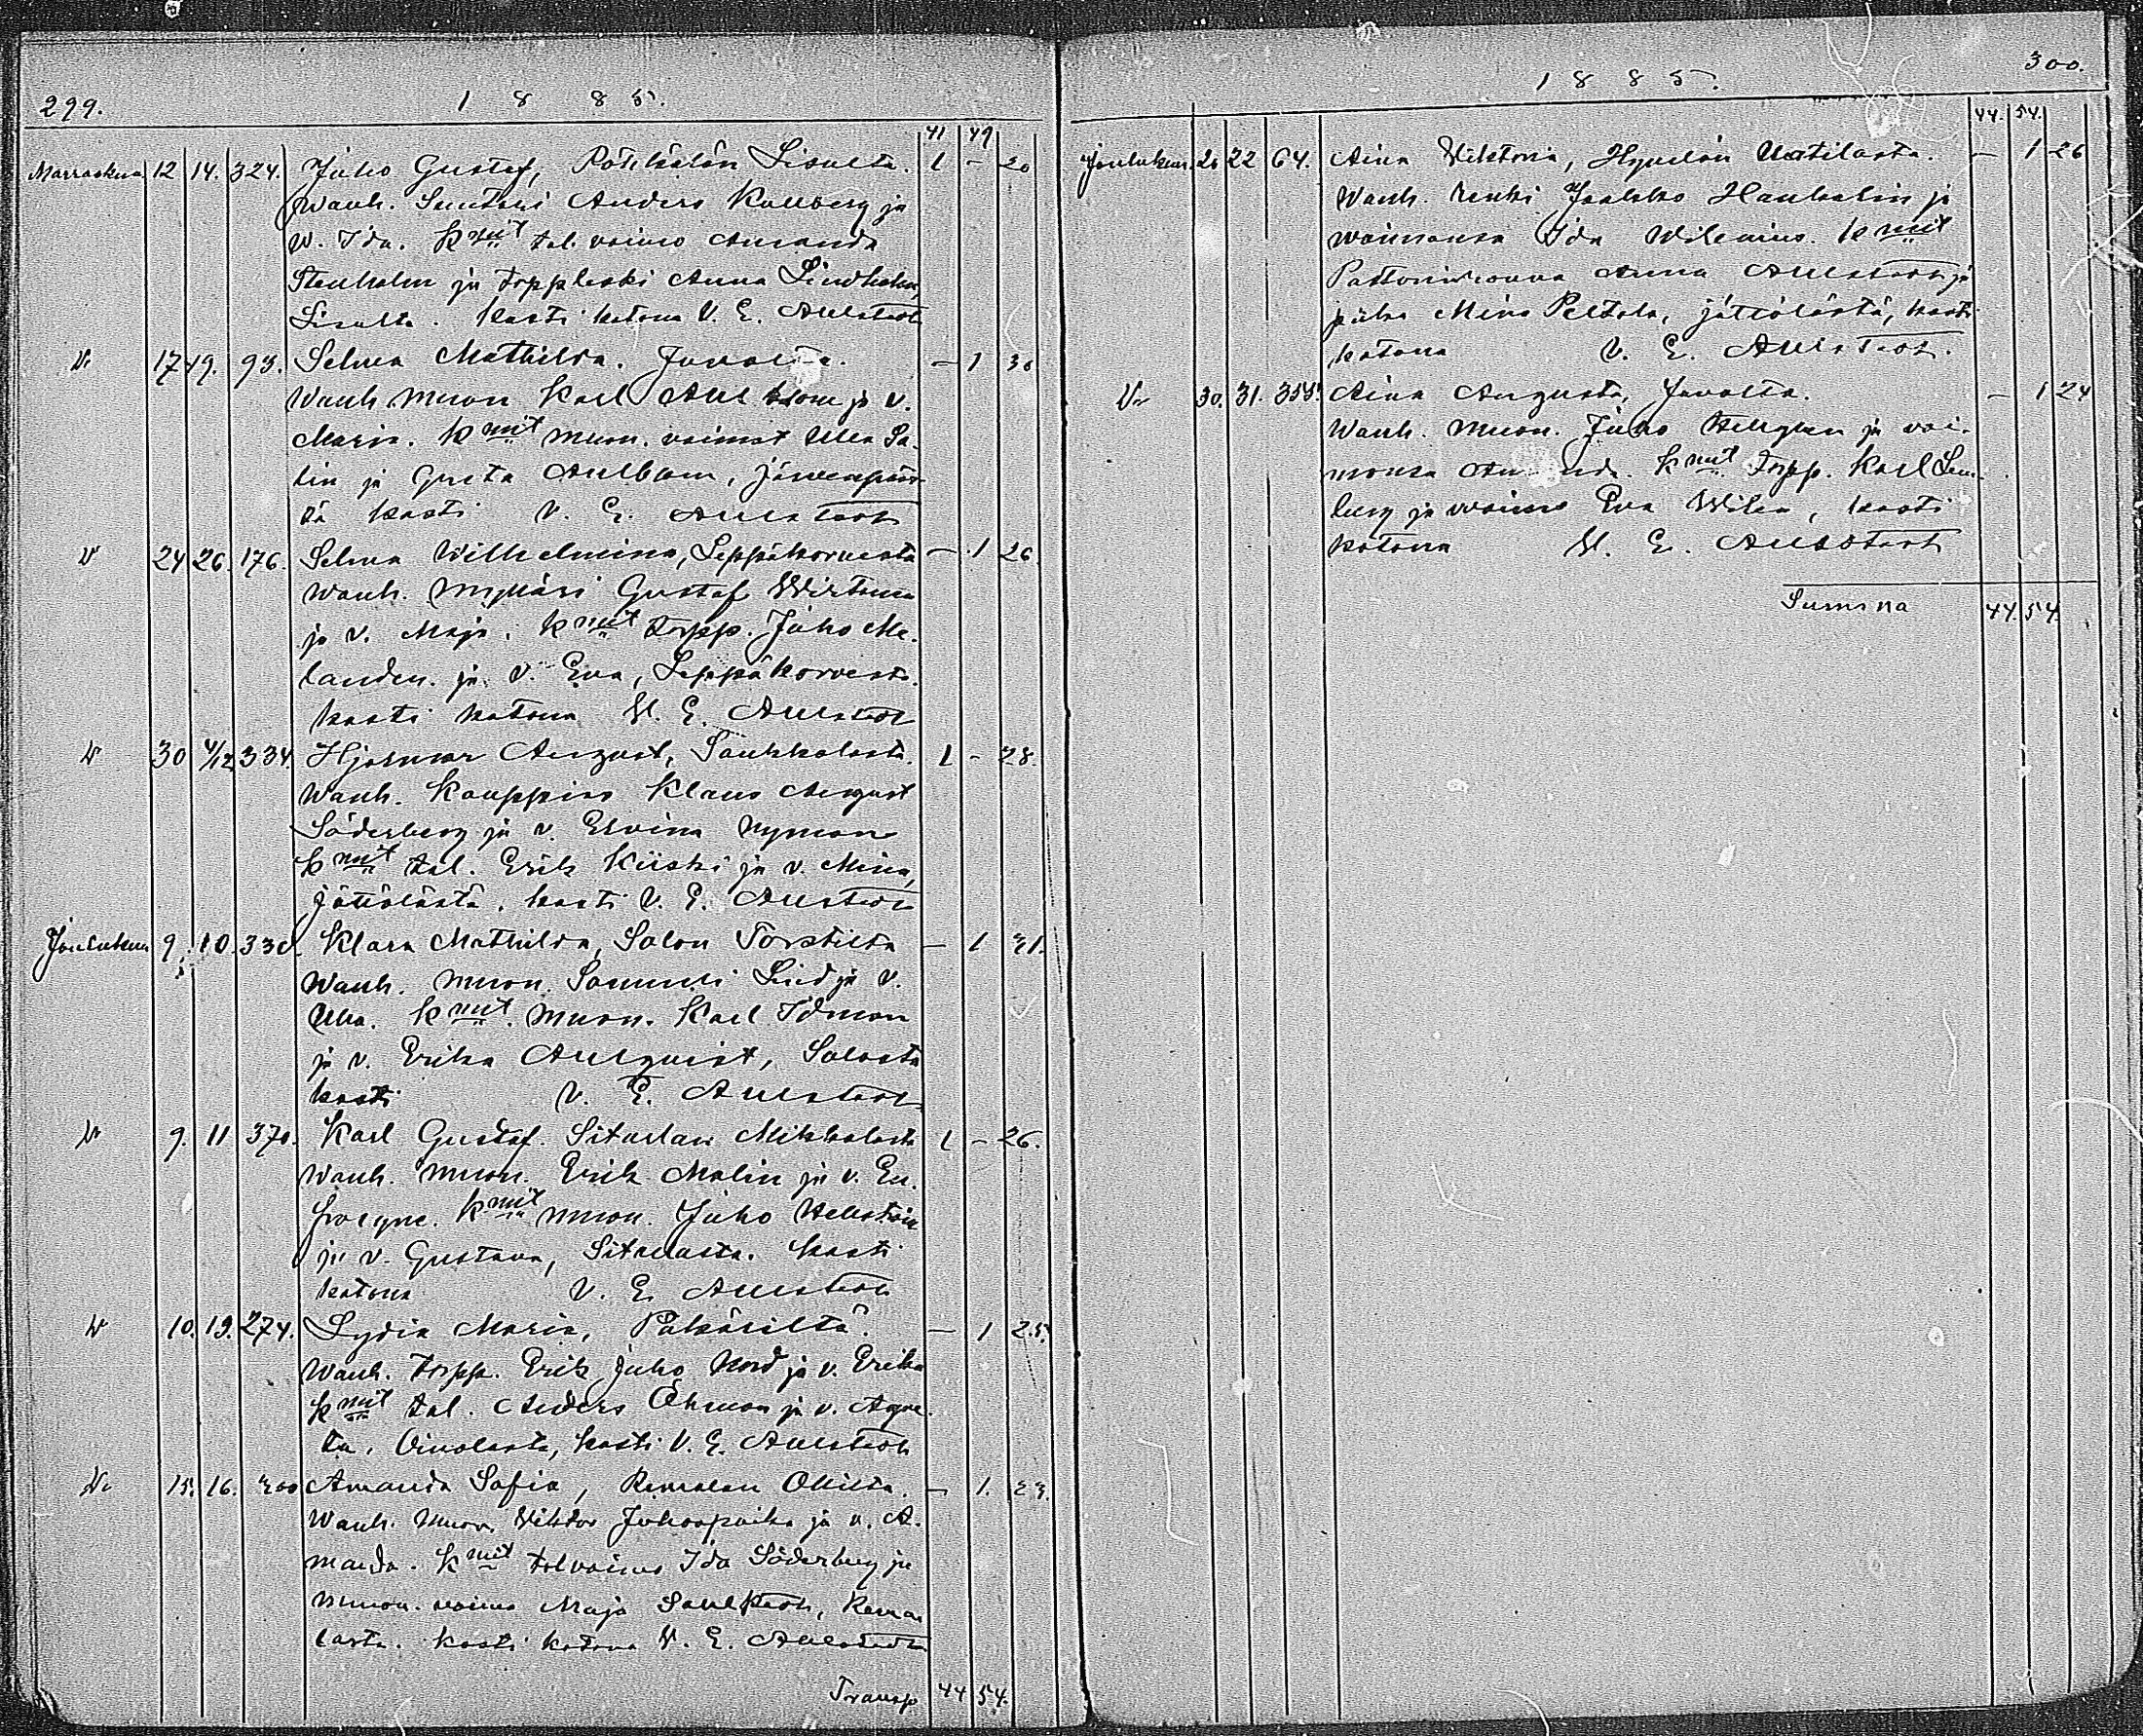 299.
1 8 8 5.
41 49
Marraskuu 12 14. 324. Juho Gustaf, Lisulta. 1 - 20
Wanh. Suutari Anders Kullberg ja
w. Ida. kmit tal. vaimo Amanda
Stenholm ja torppleski Anna Lindholm,
Lisulta. kasti kotona V. E. Aulstedt
V. 17 19. 93. Selma Mathilda. Juvalta. - 1 30
Wanh. muon Karl ja v.
Maria. kmit muon. vaimot Ulla Sa-
lin ja Greta Aulbom, Järvenpääs-
tä kasti V. E. Aulstedt
V 24 26. 176. Selma Wilhelmina, Leppäkorvesta - 1 26.
Wanh. Mylläri Gustaf Wirtanen
ja v. Maja. kmit torpp. Juho Me-
lander. ja v. Eva, Leppäkorvesta.
kasti kotona V. E. Aulstedt
V 30 4/12 334. Hjalmar August, Saukkolasta. 1 - 28.
Wanh. Kauppias Klaus August
Söderberg ja v. Elvina Nyman
kmit tal. Erik Kiiski ja v. Mina,
Jättölästä. kasti V. E. Aulstedt
Joulukuu 9. 10. 330. Klara Mathilda, Salon Torstilta - 1 31.
Wanh. muon. Samuel Lind ja v.
Ulla. kmit. muon. Karl Idman
ja v. Erika Aulqvist, Salosta
kasti V. E. Aulstedt
V 9. 11 370. Karl Gustaf. Mikkolasta 1 - 26.
Wanh. muon. Erik Malin ja v. Eu-
frosyne. kmit muon. Juho Hellström
ja v. Gustava, kasti
kotona V. E. Aulstedt
V 10. 13. 274. Lydia Maria, - 1 25.
Wanh. torpp. Erik Juho Nord ja v. Erika
kmit tal. Anders Öhman ja v. Agne-
ta, Oinolasta, kasti V. E. Aulstedt
V. 15. 16. 300 Amanda Sofia, Remalan Ollilta. - 1. 23.
Wanh. muon. Viktor Juhonpoika ja v. A-
manda. kmit tal vaimo Ida Söderberg ja
muon. vaimo Maja Remas-
lasta. kasti kotona V. E. Aulstedt
Transp. 44 54.
300.
1 8 8 5.
44. 54.
Joulukuu. 20 22 64. Aina Viktoria, Uotilasta. - 1 26
Wanh. renki Jaakko ja
waimonsa Ida Wilenius. kmit
Pastorinrouva Anna Aulstedt ja
piika Mina Peltola, Jättölästä, kasti
kotona V. E. Aulstedt.
V. 30. 31. 355. Aina Augusta, Juvalta. - 1 24
Wanh. muon. Juho Hellgren ja vai-
monsa Amanda. kmit torpp. Karl
berg ja vaimo Eva kasti
kotona V. E. Aulstedt
Summa 44. 54.